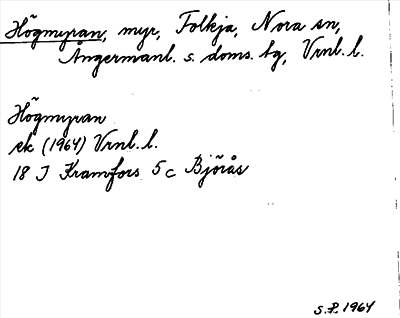 Högmyran, myr, Folkja, Nora sn,
Ångermanl. s. doms. tg, Vrnl. l.
Högmyran
ek (1964) Vrnl. l.
18 J Kramfors 5 c Björås
S.P. 1964